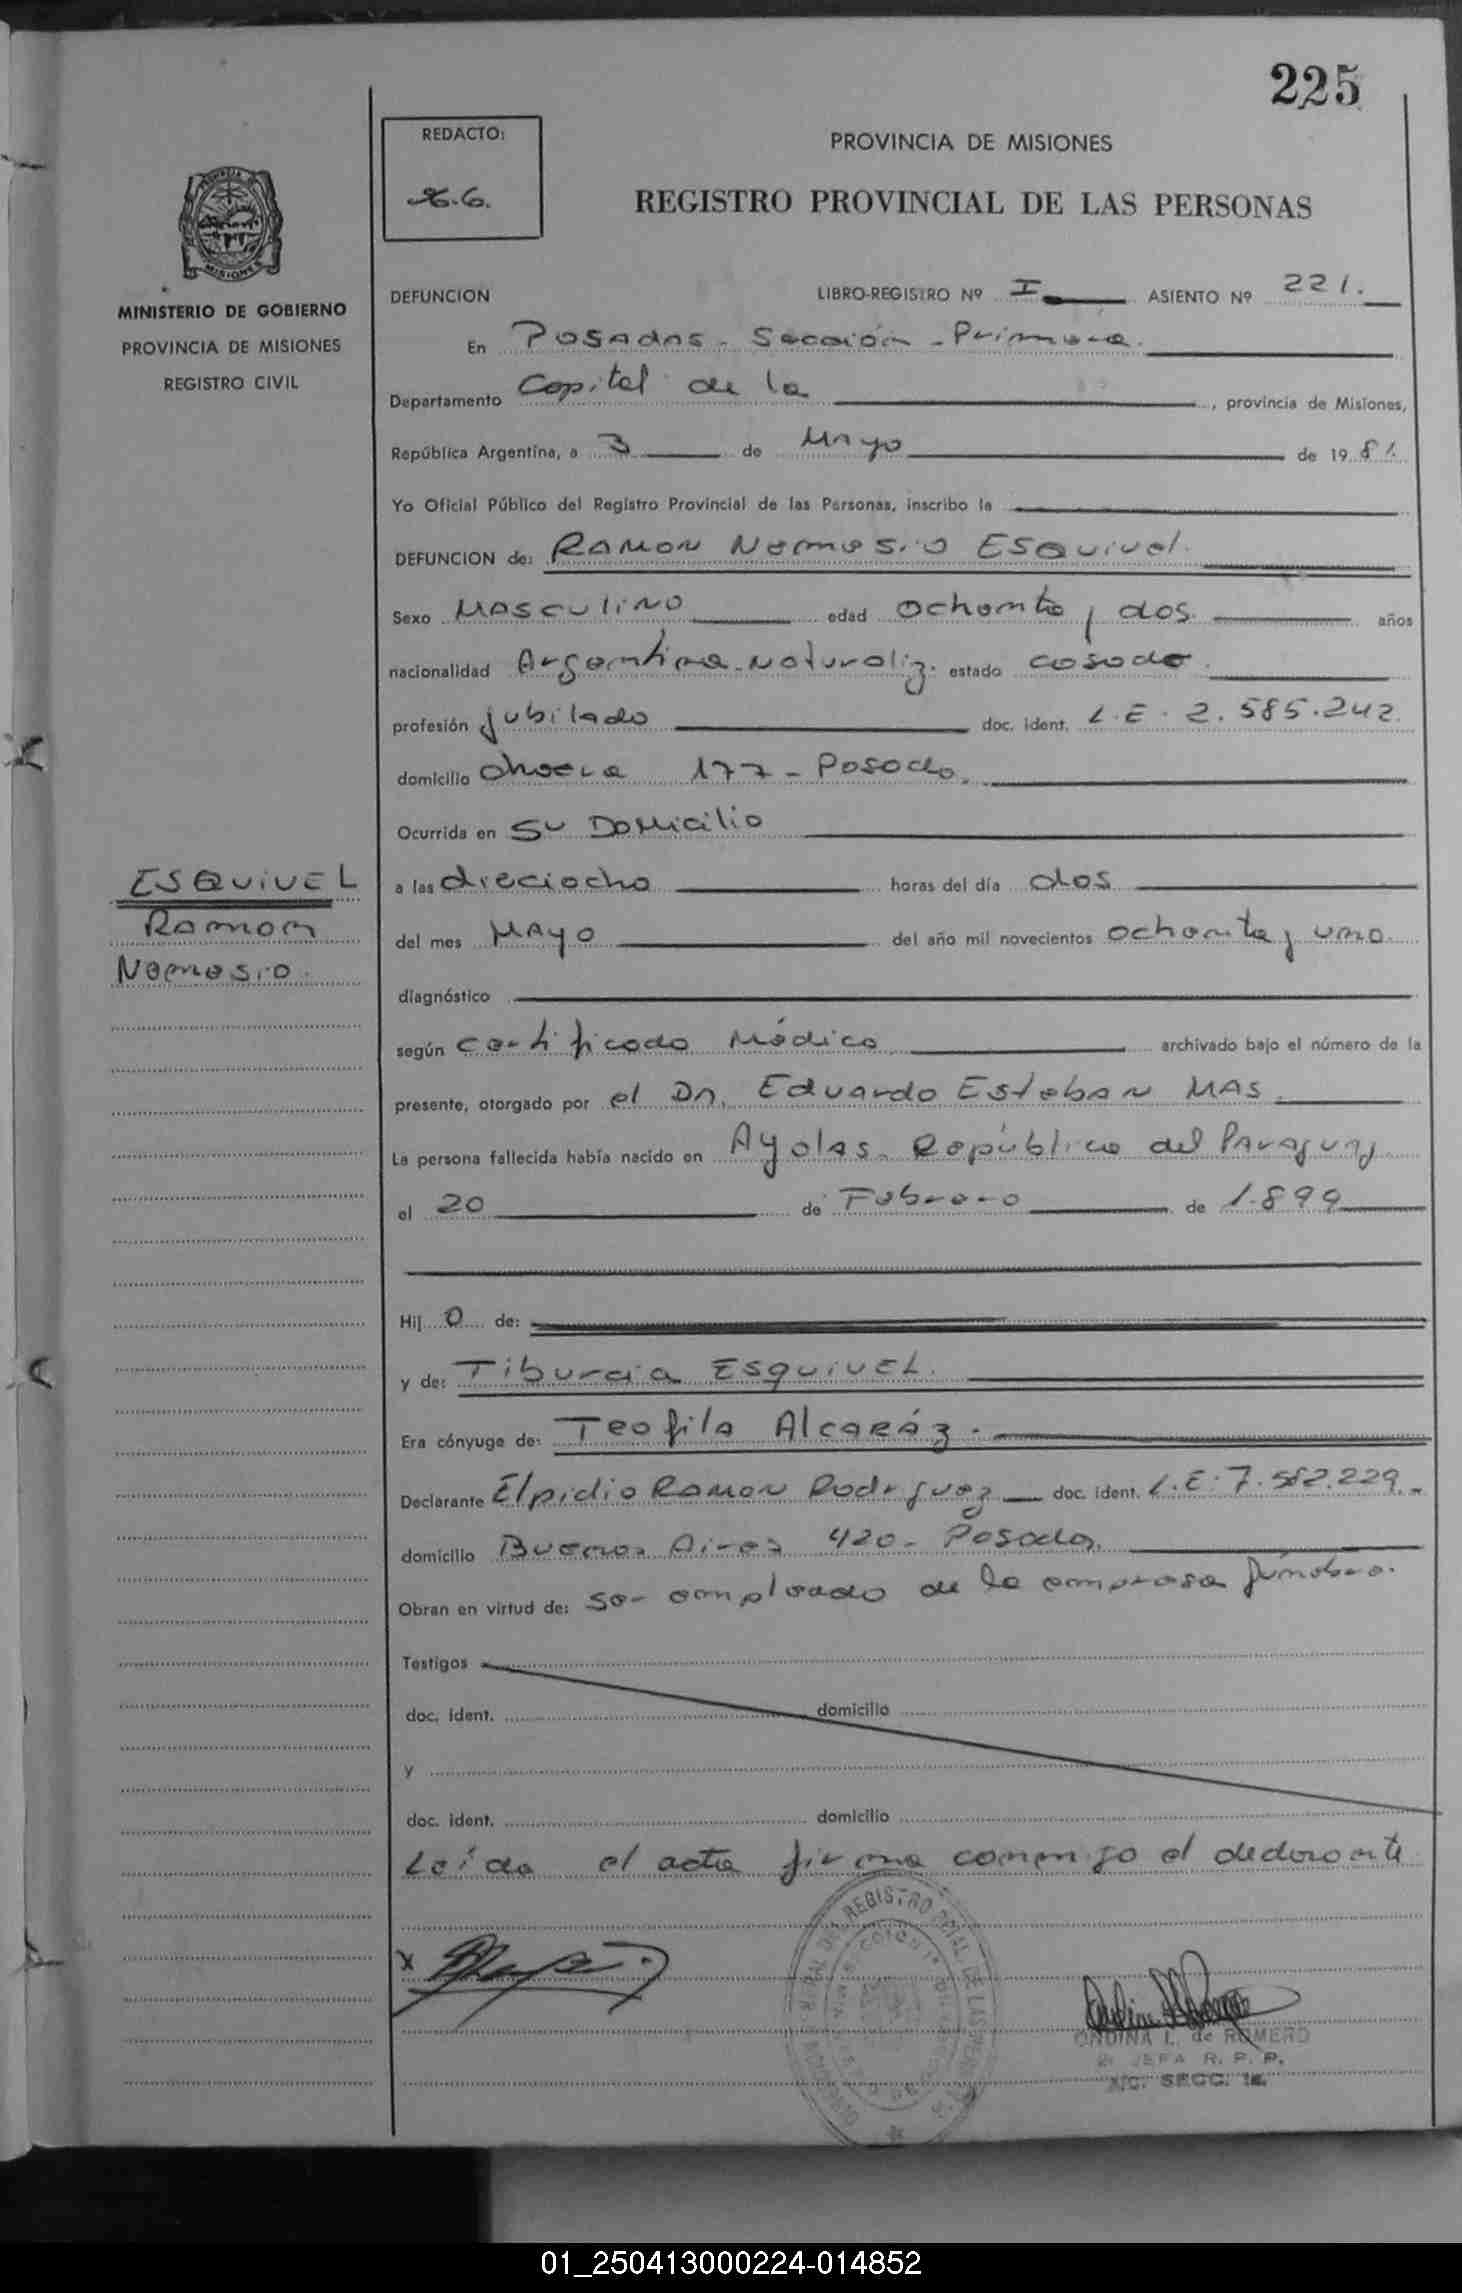 225
REDACTO:
PROVINCIA DE MISIONES
REGISTRO PROVINCIAL DE LAS PERSONAS
MISIONES
MINISTERIO DE GOBIERNO
PROVINCIA DE MISIONES
REGISTRO CIVIL
DEFUNCION LIBRO-REGISTRO Nº I ASIENTO Nº 221.
En Posadas - Sección - Primera.
Departamento Capital de la , provincia de Misiones,
República Argentina, a 3 de Mayo de 1981.
Yo Oficial Público del Registro Provincial de las Personas, inscribo la
DEFUNCION de: Ramon Nemesio Esquivel.
Sexo Masculino edad ochenta y dos. años
nacionalidad Argentina-Naturaliz. estado casado.
profesión jubilado doc. ident. L.E. 2.585.242.
domicilio 177 - Posadas.
Ocurrida en su Domicilio
a las dieciocho horas del día dos
del mes Mayo del año mil novecientos ochenta y uno.
diagnóstico
según certificado Médico archivado bajo el número de la
presente, otorgado por el Dr. Eduardo Esteban MAS.
La persona fallecida había nacido en Ayolas - República del Paraguay
el 20 de Febrero de 1.899
Hijo de:
y de: Tiburcia ESQUIVEL.
Era cónyuge de: Teofila Alcaráz.
Declarante Elpidio Ramon Rodriguez doc. ident. L.E. 7.582.229.-
domicilio Buenos Aires 420 - Posadas.
Obran en virtud de: ser empleado de la empresa fúnebre.
Testigos
doc. ident. domicilio
y
doc. ident. domicilio
Leída el acta firma conmigo el declarante
X
ONDINA L. de ROMERO
JEFA R. P. P.
SECC. 1a.
ESQUIVEL
Ramon
Nemesio.
01_250413000224-014852